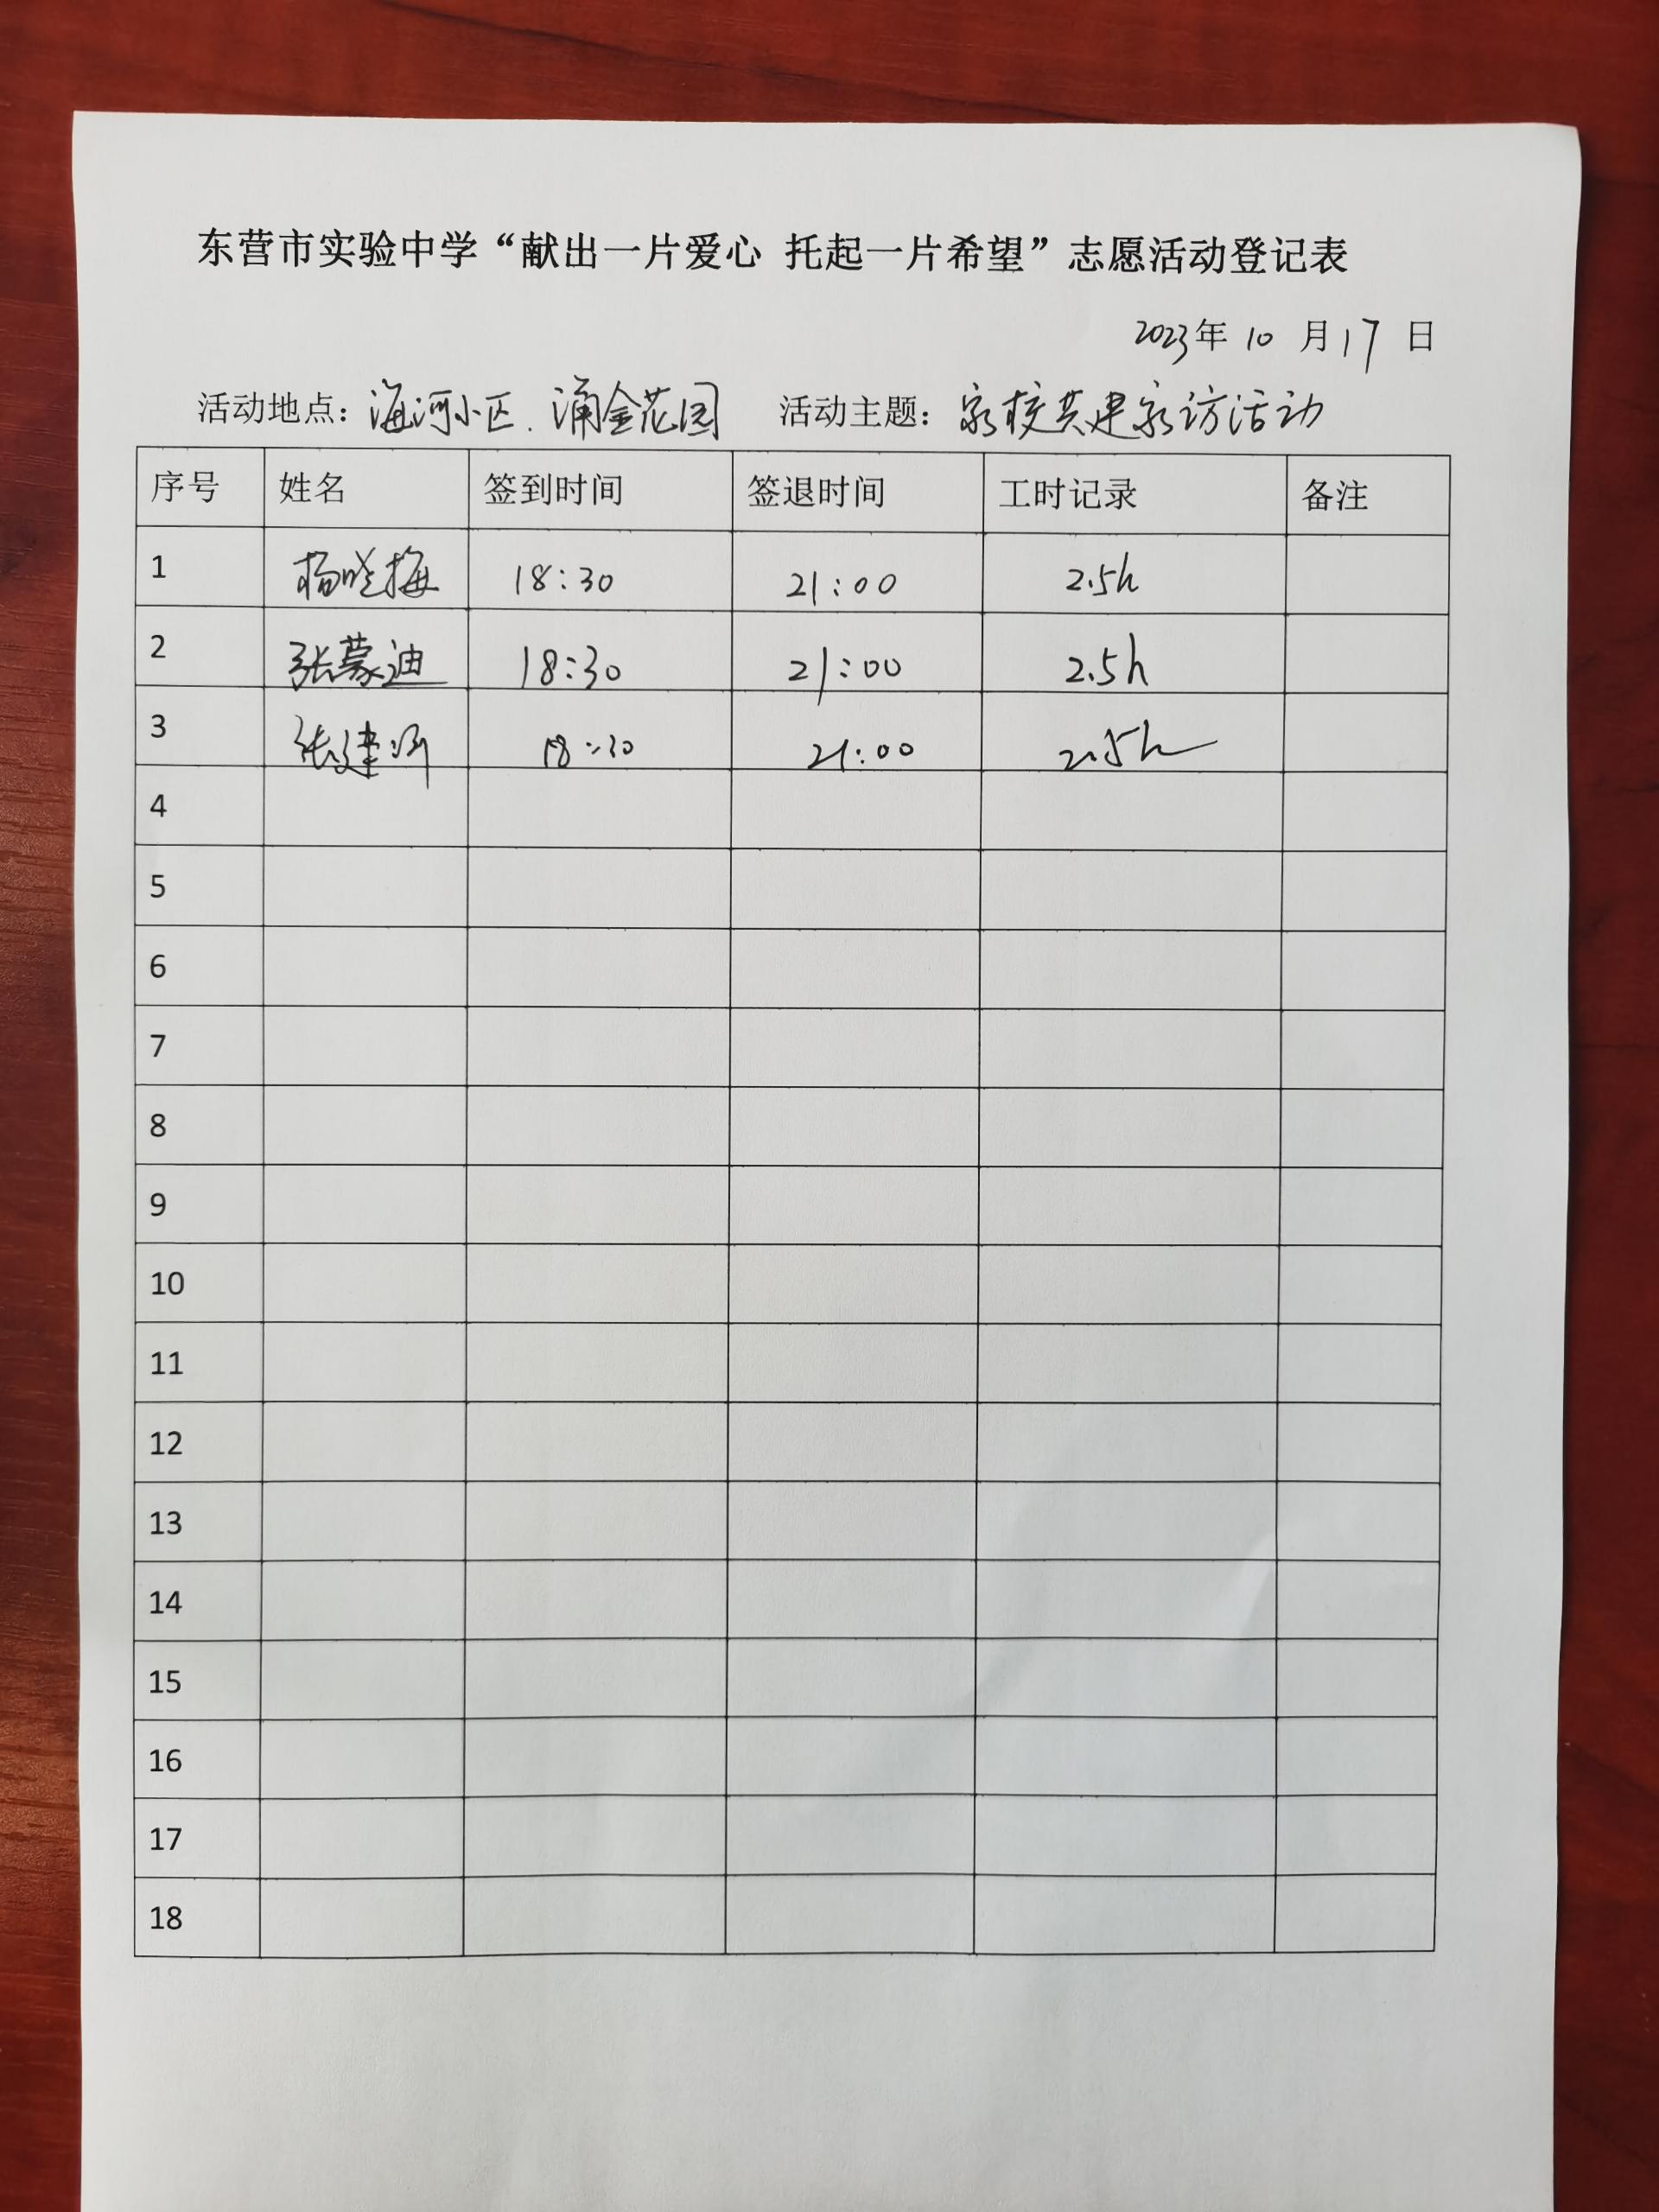 东营市实验中学“献出一片爱心 托起一片希望”志愿活动登记表
2023年 10 月 17 日
活动地点：海河小区、涌金花园 活动主题：家校共建家访活动
序号 姓名 签到时间 签退时间 工时记录 备注
1 杨晓梅 18:30 21:00 2.5h
2 张蒙迪 18:30 21:00 2.5h
3 张建 18:30 21:00 2.5h
4
5
6
7
8
9
10
11
12
13
14
15
16
17
18